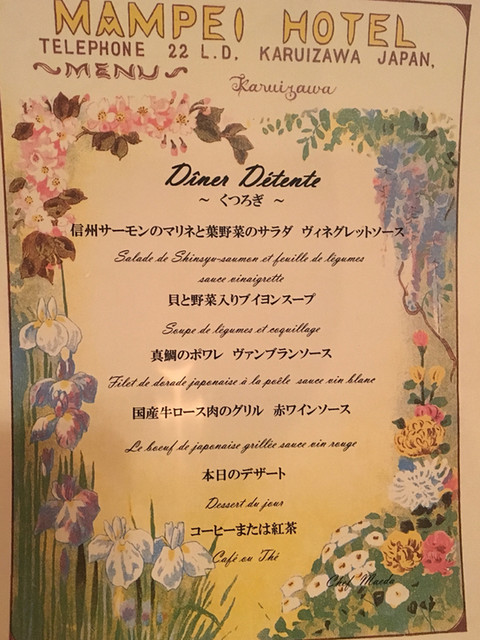 MAMPEI HOTEL
TELEPHONE 22 L.D. KARUIZAWA JAPAN.
~MENU~
Karuizawa
Dîner Détente
～ くつろぎ ～
信州サーモンのマリネと葉野菜のサラダ ヴィネグレットソース
Salade de Shinsyu-saumon et feuille de légumes
sauce vinaigrette
貝と野菜入りブイヨンスープ
Soupe de légumes et coquillage
真鯛のポワレ ヴァンブランソース
Filet de dorade japonaise à la poêle sauce vin blanc
国産牛ロース肉のグリル 赤ワインソース
Le boeuf de japonaise grillée sauce vin rouge
本日のデザート
Dessert du jour
コーヒーまたは紅茶
Café ou Thé
Chef Maeda